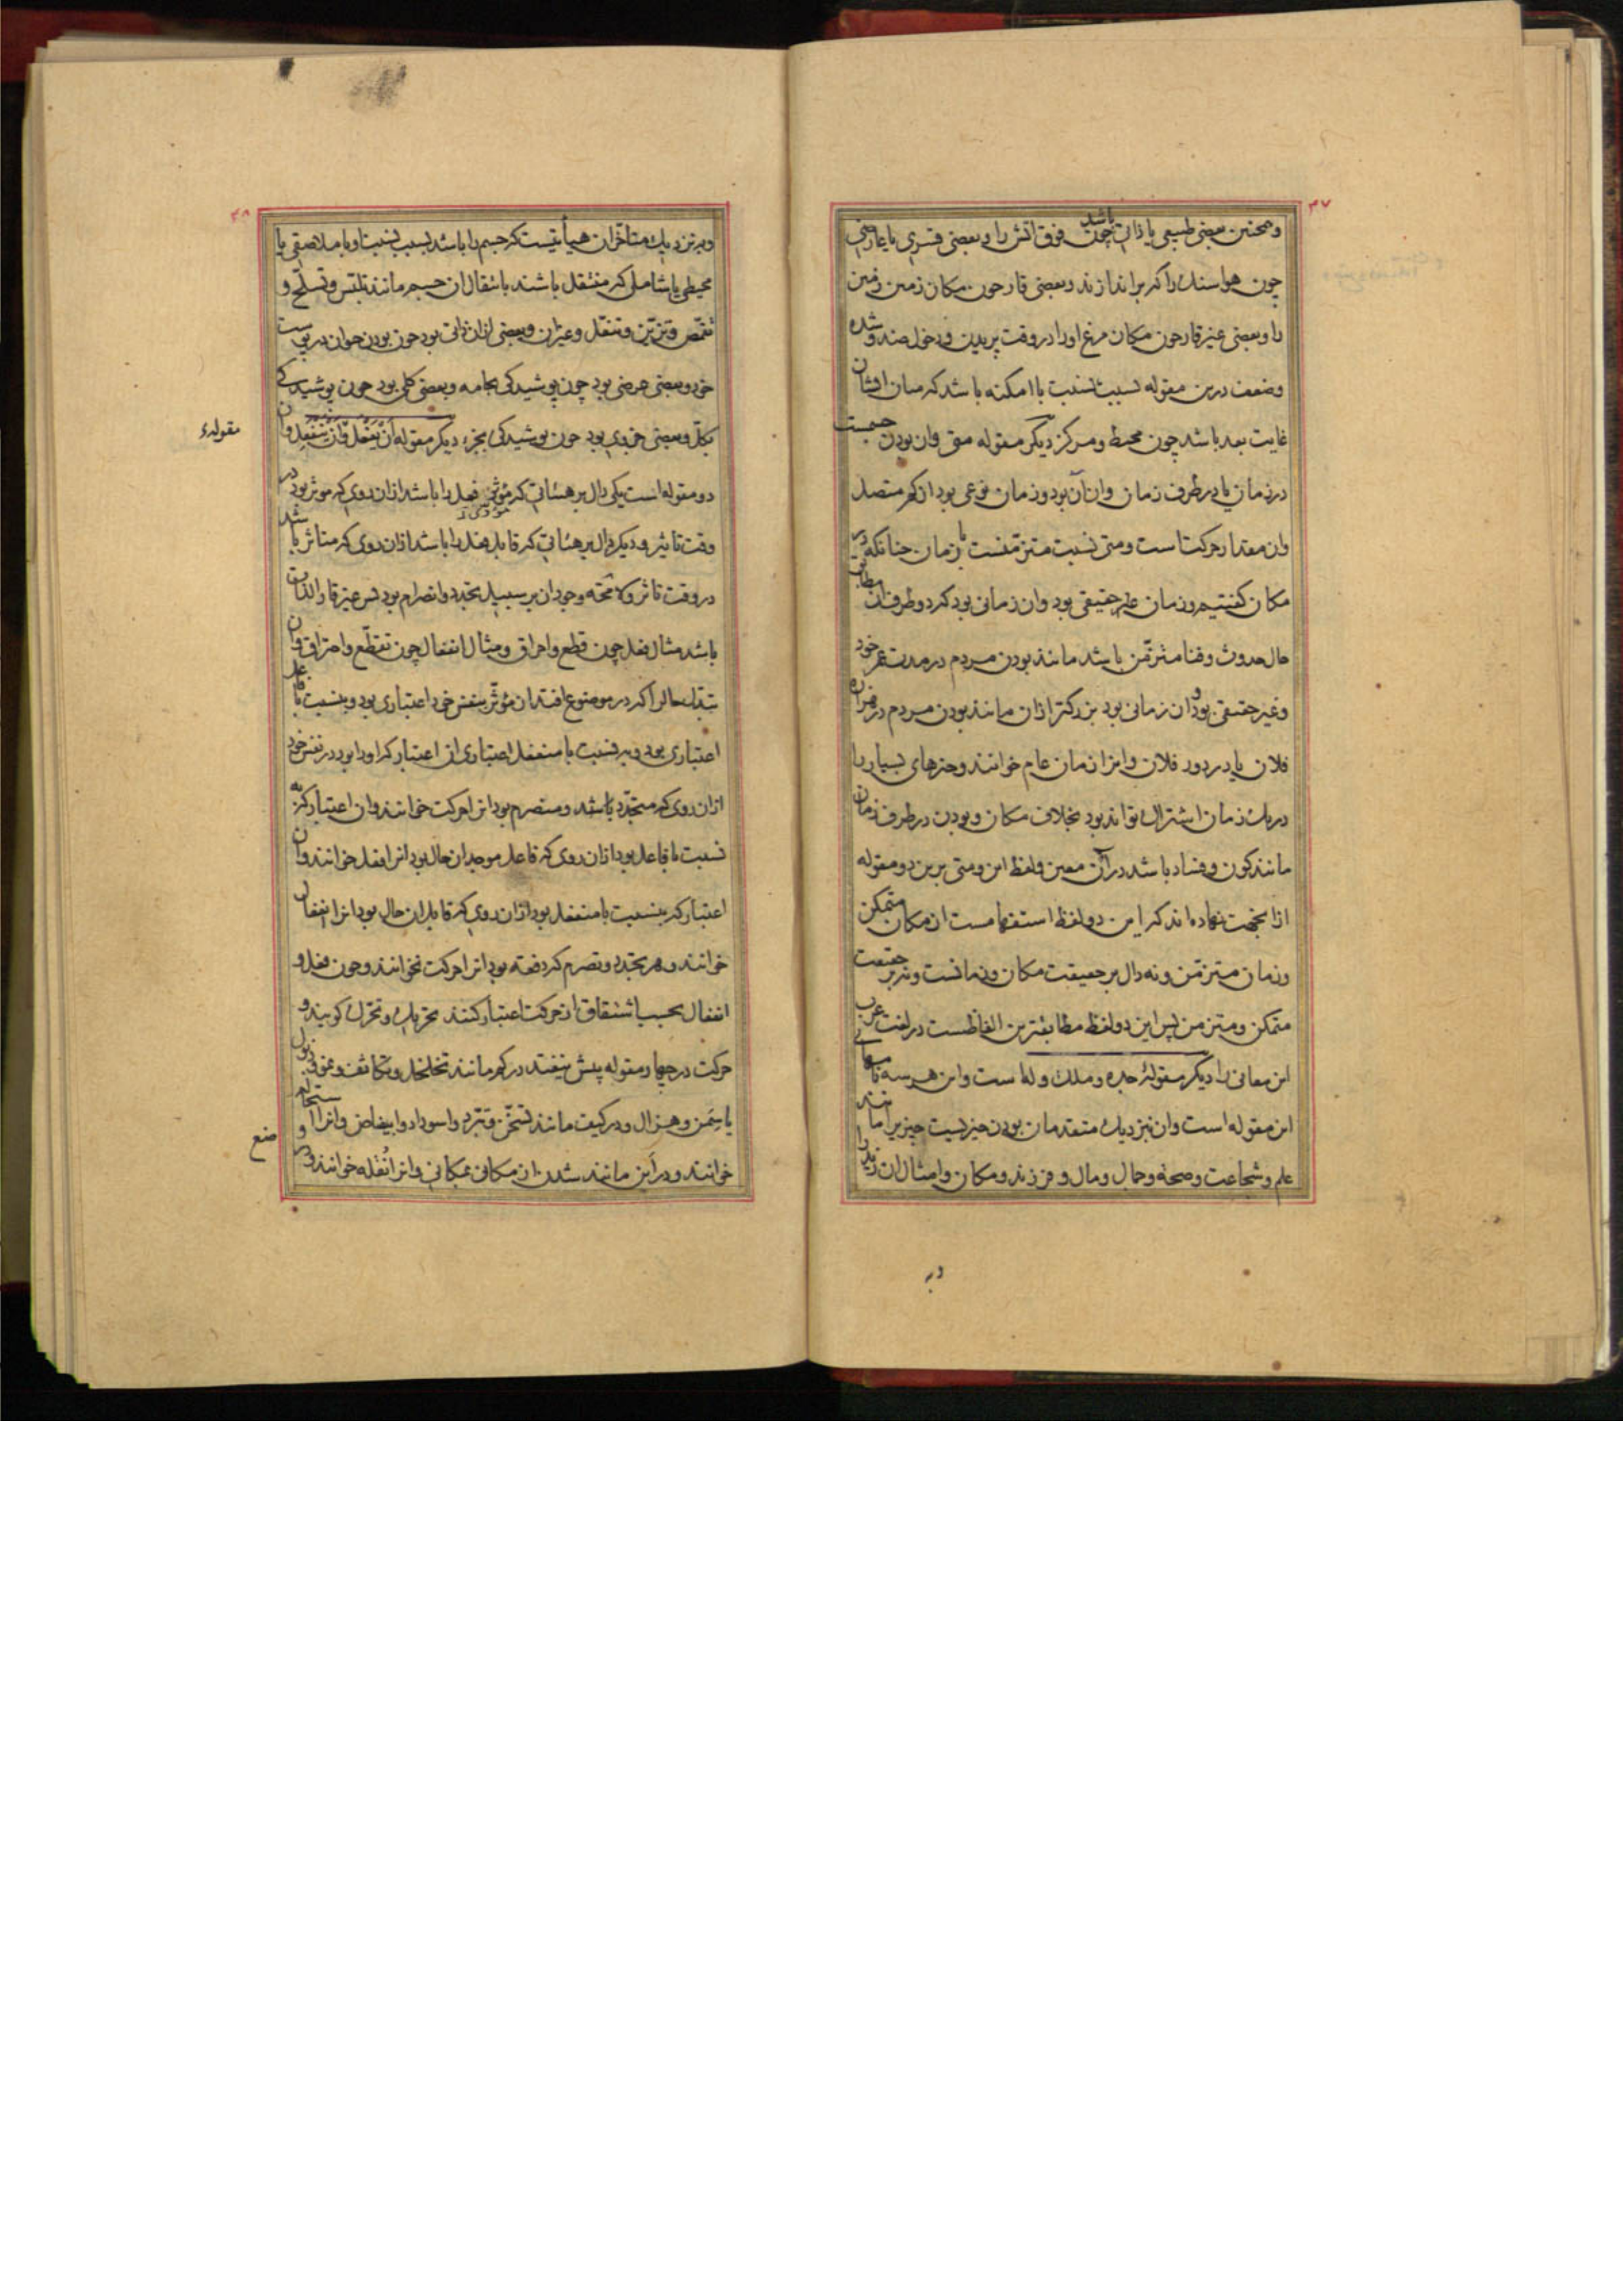 ۳۷
وهمچنین بعضی طبیعی یا ذاتی باشد چون فوق اتش را و بعضی قسری یا عارضی
چون هوا سنك را كه براندازند و بعضی قار چون مكان زمین زمین
را و بعضی غیر قار چون مكان مرغ اورا در وقت پریدن و دخول ضد و شده
وضعف درین مقوله بسبب نسبت با امكنه باشد كه میان ایشان
غایت بعد باشد چون محیط و مركز دیگر مقوله متی وان بودن
در زمان یا در طرف زمان وان آن بود و زمان نوعی بود از كم متصل
وان مقدار حركتست و متی نسبت متزمّنست با زمان چنانكه در
مكان گفتیم و زمان حقیقی بود وان زمانی بود كه دو طرف ان مطابق
حال حدوث و فنا متزمّن باشد مانند بودن مردم در مدت عمر خود
وغیر حقیقی بود وان زمانی بود بزرگتر ازان مانند بودن مردم در قران
فلان یا در دور فلان وانرا زمان عام خوانند و چیزهای بسیار را
در یك زمان اشتراك تواند بود بخلاف مكان و بودن در طرف زمان
مانند كون و فساد باشد در آن معین و لفظ این و متی برین دو مقوله
ازانجهت نهاده اند كه این دو لفظ استفهامست از مكان متمكن
وزمان متزمّن و نه دال بر حقیقت مكان و زمانست و نه بر حقیقت
متمكن و متزمن پس این دو لفظ مطابقترین الفاظست در لغت عرب
این معانی را دیگر مقولهٔ جده و ملك و له است و این هر سه نامهای
این مقوله است وان نزدیك متقدمان بودن چیزیست چیزیرا مانند
علم و شجاعت و صحه و جمال و مال و فرزند و مكان و امثال ان زید را
و به
۳۸
و به نزدیك متاخّران هیأتیست كه جسم را باشد بسبب نسبت او با ملاصقی یا
محیطی یا شاملی كه منتقل باشند بانتقال ان جسم مانند تلبّس و تسلّح و
تقمّص و تزیّن و تنعّل و غیران و بعضی ازان ذاتی بود چون بودن حیوان در پوست
خود و بعضی عرضی بود چون پوشیدگی بجامه و بعضی كلی بود چون پوشیدگی
بكلّ و بعضی جزوی بود چون پوشیدگی بجزء دیگر مقوله أنْ یَفْعَل وَأنْ یَنْفَعِل وان
مقولهء
دو مقوله است یكی دال بر هیئاتی كه مؤثر فعل را باشد ازان روی كه موثر بود در
وقت تاثیر و دیگر دال بر هیئاتی كه قابل فعل را باشد ازان روی كه متاثر باشد
در وقت تاثر و لا محّه وجود ان بر سبیل تجدد و انصرام بود پس غیر قار الذات
باشد مثال فعل چون قطع و احراق و مثال انفعال چون تقطّع و احتراق وان
تبدّل حال را كه در موضوع افتد ان مؤثّر بنفس خود اعتباری بود و بنسبت با فاعل
اعتباری بود و به نسبت با منفعل اعتباری از اعتبار كه اورا بود در نفس خود
ازان روی كه متجدّد باشد و منصرم بود انرا حركت خوانند وان اعتبار كه به
نسبت با فاعل بود ازان روی كه فاعل موجد ان حال بود انرا فعل خوانند وان
اعتبار كه بنسبت با منفعل بود ازان روی كه قابل ان حال بود انرا انفعال
خوانند و هر تجدد و تصرم كه دفعه بود انرا حركت نخوانند و چون فعل و
انفعال بحسب اشتقاق از حركت اعتبار كنند تحریك و تحرّك گویند و
حركت در چهار مقوله پیش نیفتد در كم مانند تخلخل و تكاثف و نمو و ذبول
یا سِمَن و هزال و در كیف مانند تسخّن و تبرّد و اسوداد و ابیضاض وانرا استحاله
خوانند و در أین مانند شدن از مكانی بمكانی وانرا نُقْله خوانند و در
وضع